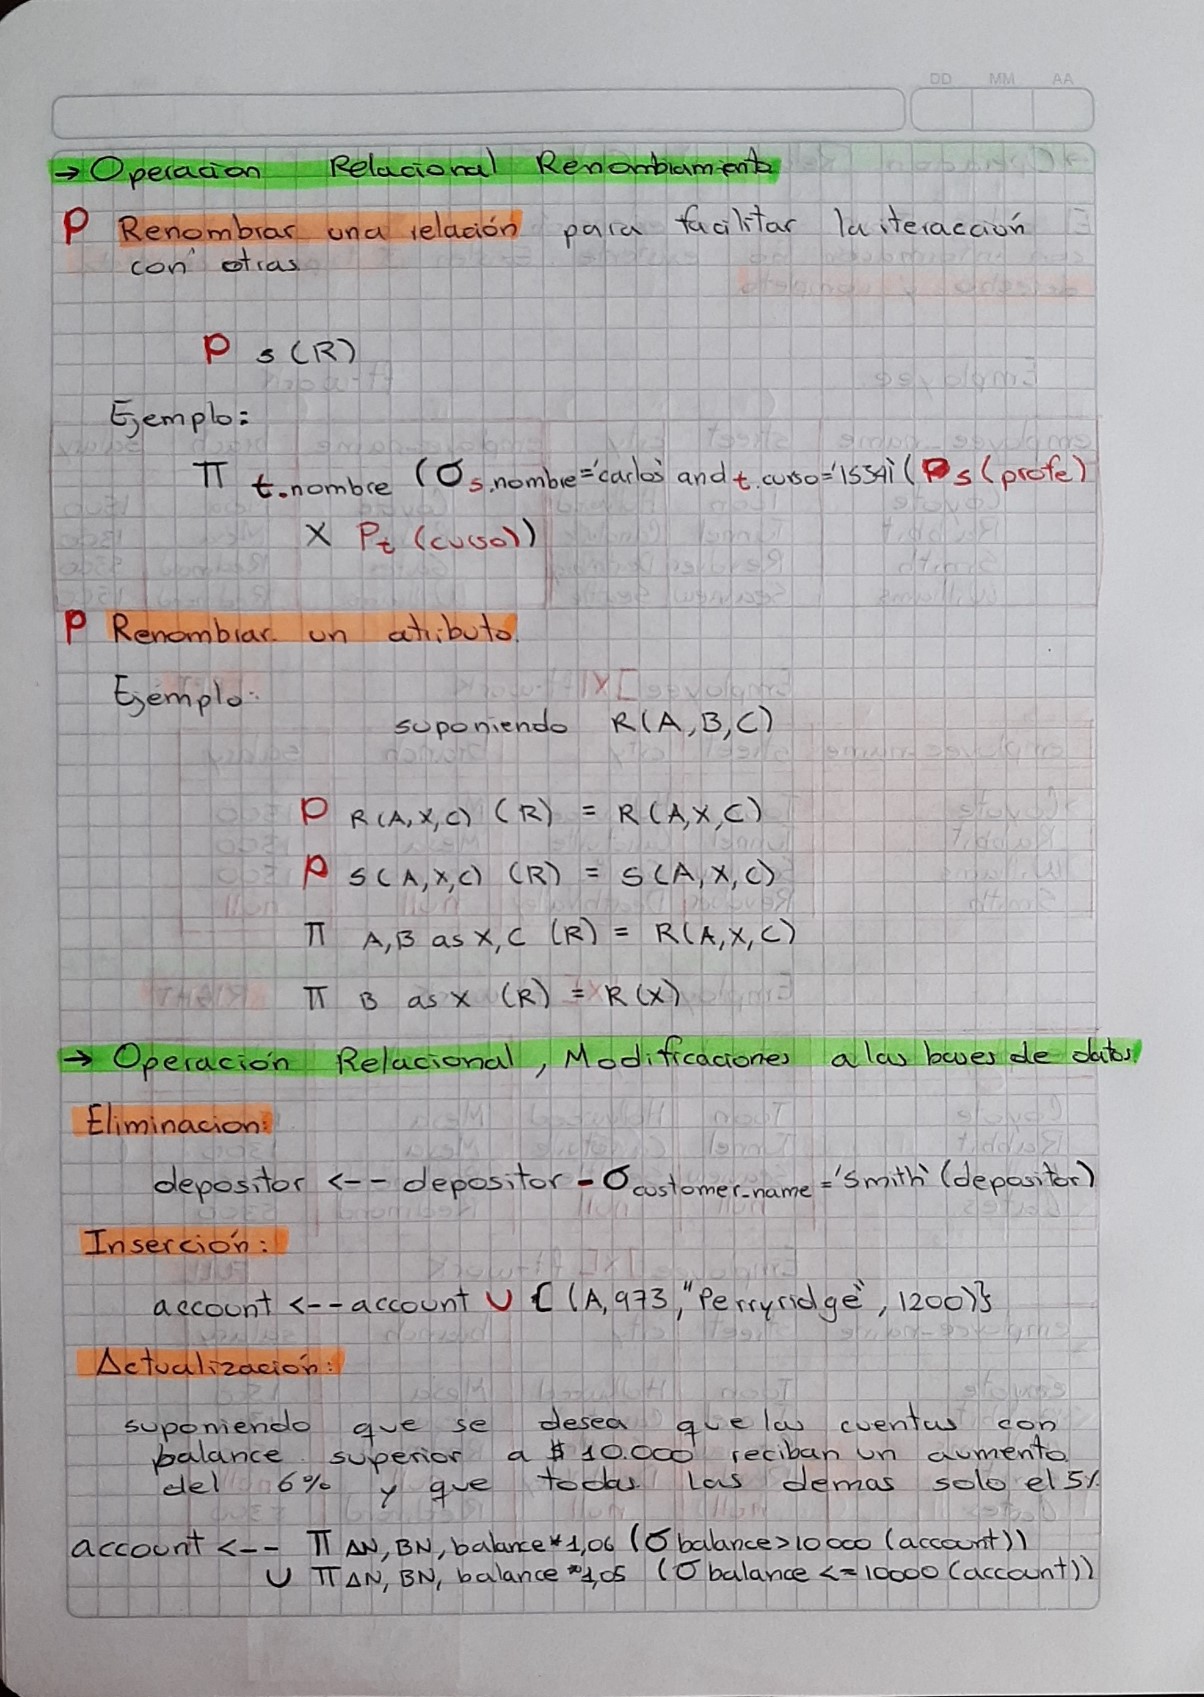 DD MM AA
→ Operacion Relacional Renombramiento
ρ Renombrar una relación para facilitar la iteracción
con otras
ρ s (R)
Ejemplo:
π t.nombre (σ s.nombre='carlos' and t.curso='1534' (ρ s (profe)
X ρ t (curso))
ρ Renombrar un atributo.
Ejemplo:
suponiendo R(A,B,C)
ρ R(A,X,C) (R) = R(A,X,C)
ρ S(A,X,C) (R) = S(A,X,C)
π A,B as X,C (R) = R(A,X,C)
π B as X (R) = R(X)
→ Operación Relacional, Modificaciones a las bases de datos.
Eliminacion:
depositor <-- depositor - σ customer_name = 'Smith' (depositor)
Inserción:
account <-- account ∪ {(A,973,"Perryridge", 1200)}
Actualización:
suponiendo que se desea que las cuentas con
balance superior a $10.000 reciban un aumento
del 6% y que todas las demas solo el 5%
account <-- π AN, BN, balance*1,06 (σ balance>10000 (account))
∪ π AN, BN, balance *1,05 (σ balance <=10000 (account))